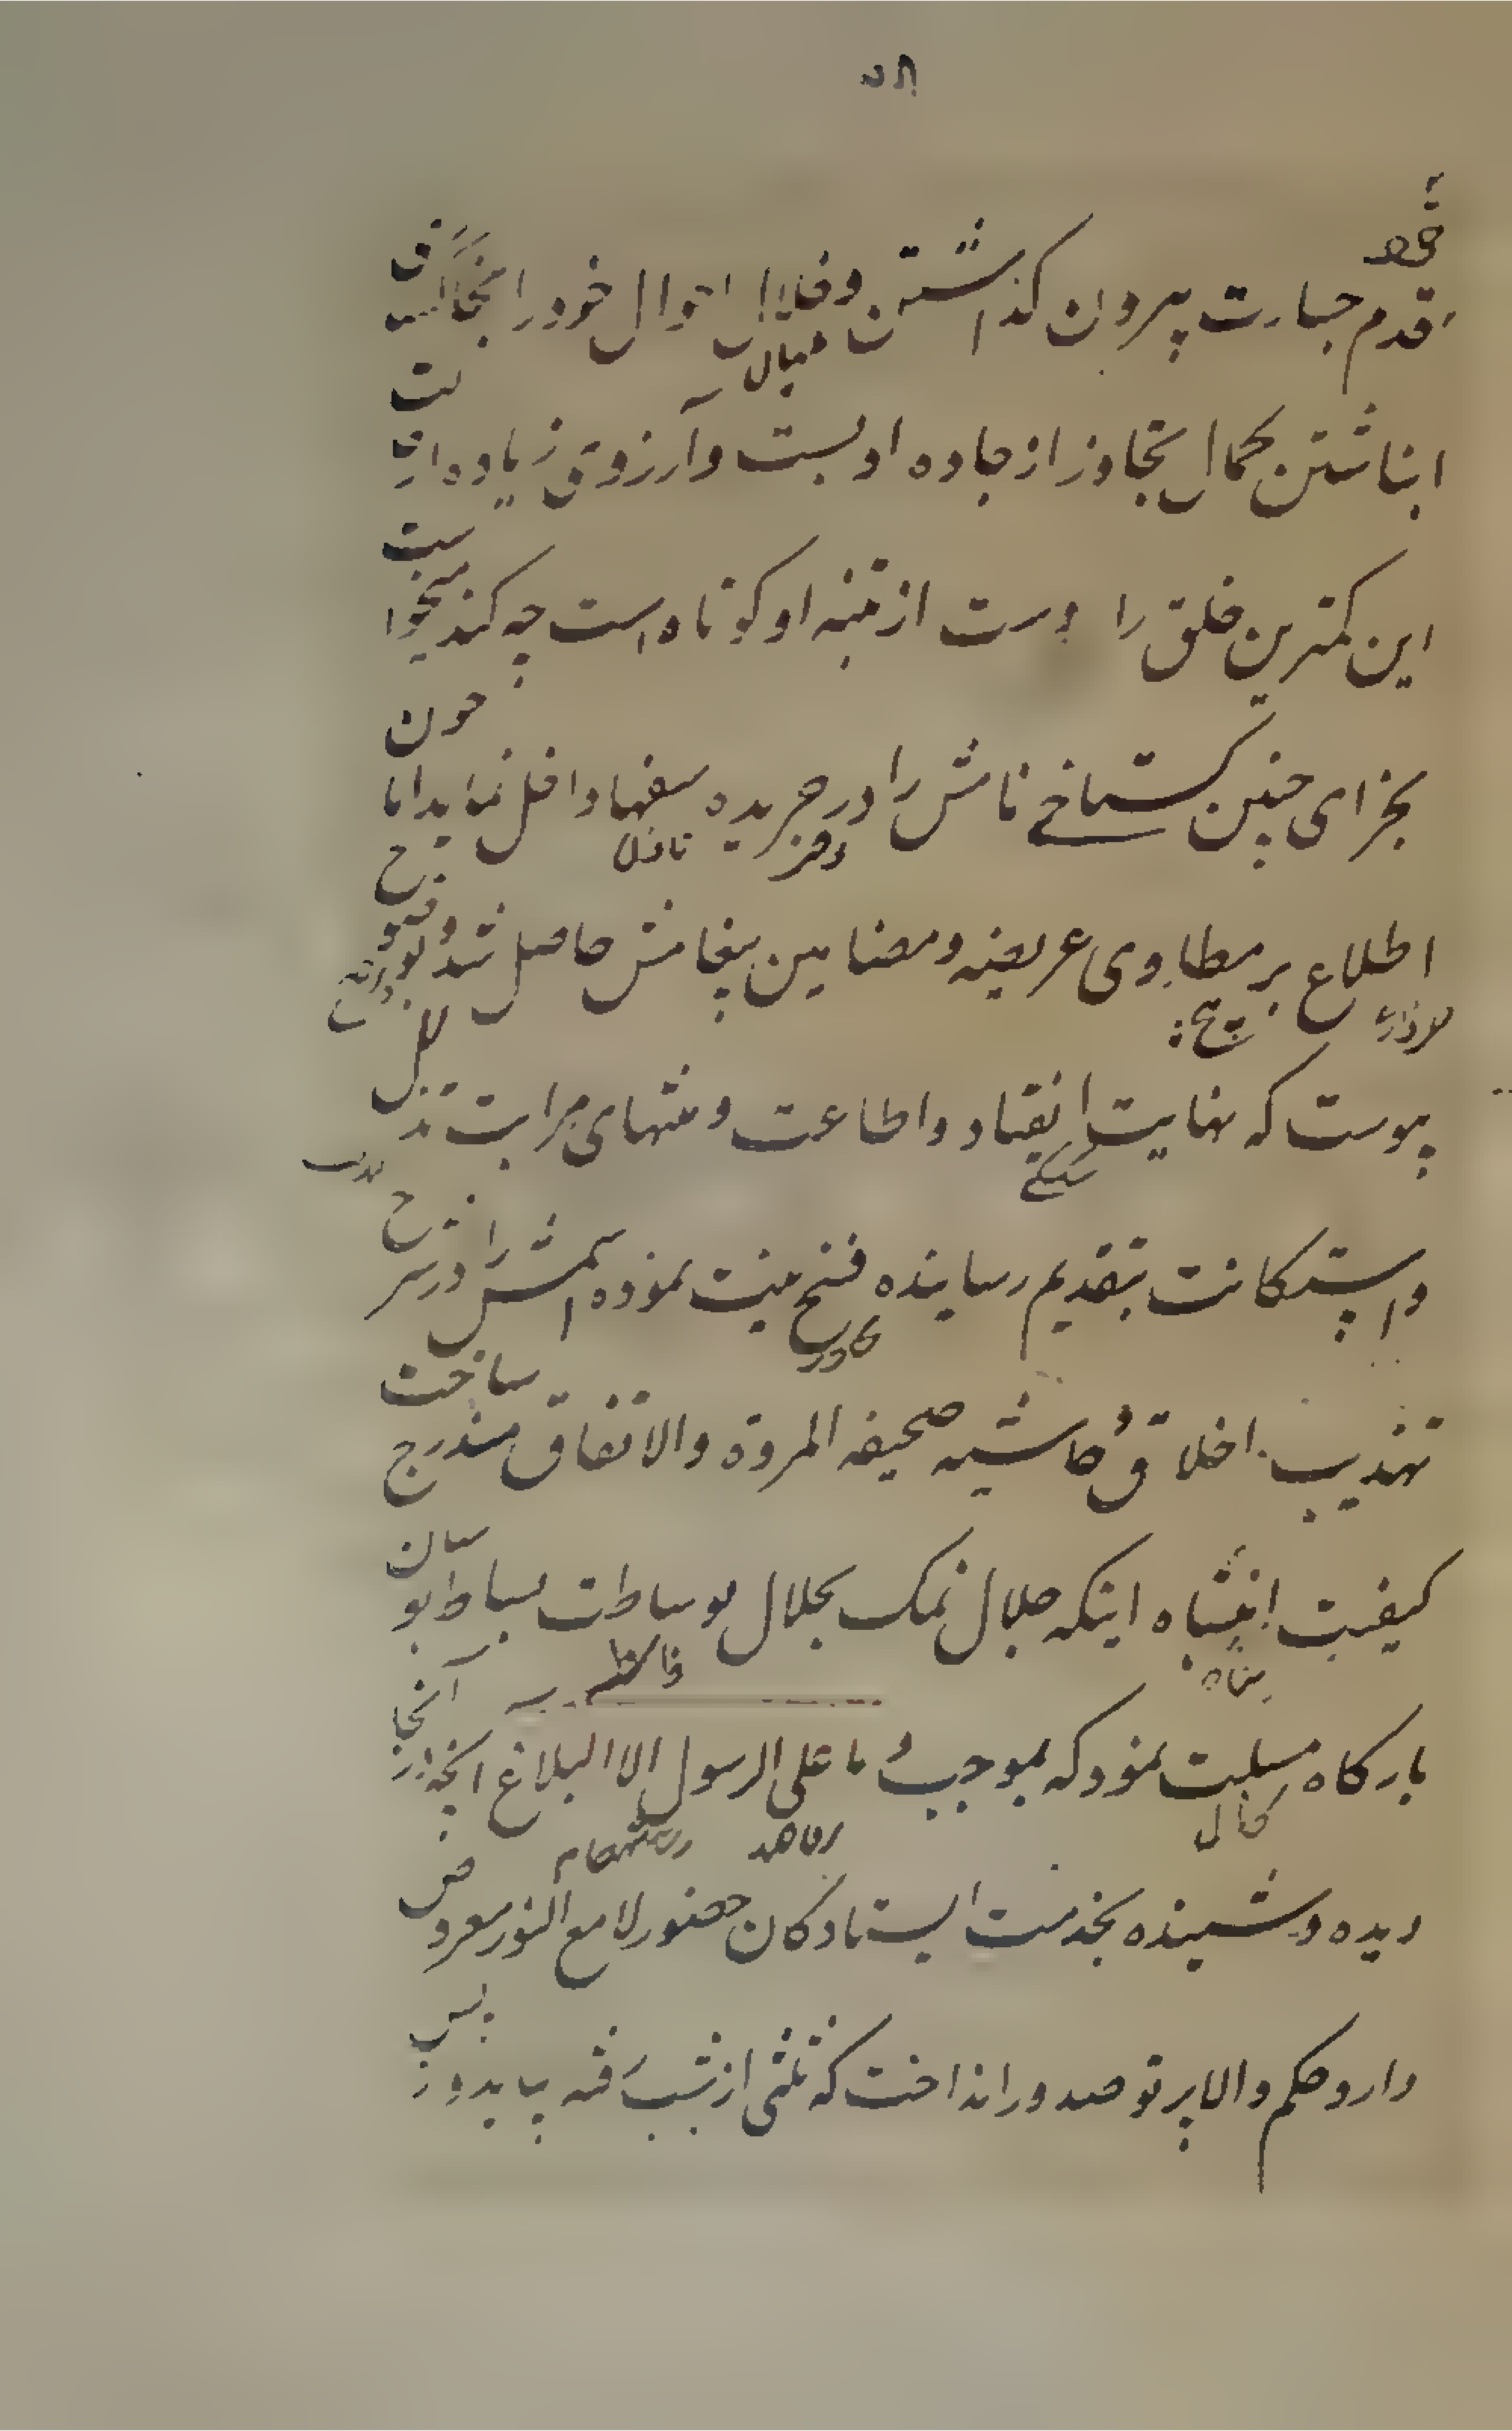 قدم جسارت بیرون کذاشتن و خلال احوال خود را
انباشتن کمال تجاوز از جاده ادبست و آرزوی زیاده از
این کمترین خلق را دست از تنبه او کوتاه است چه کند میخواست
بجزای چنین کستاخی نامش را در جریده سفها داخل نماید اما چون
اطلاع بر مطاوی عریضه و مضامین پیغامش حاصل شد و بوضوح
پیوست که نهایت انقیاد و اطاعت و منتهای مراتب تذلل
و استکانت بتقدیم رسانیده فسخ نیت نموده اسمش را در شرح
تهذیب اخلاق و حاشیه صحیفه المروة والاتفاق مندرج ساخت
کیفیت انتباه اینکه جلال نمک بحلال بوساطت بساط بوسان
بارکاه مسئلت نمود که بموجب و ما علی الرسول الا البلاغ آنچه از آنجا
دیده و شنیده بخدمت ایستادکان حضور لامع النور معروض
دارد حکم والا پرتو صدور انداخت که ثلثی از شب رفته بیاید